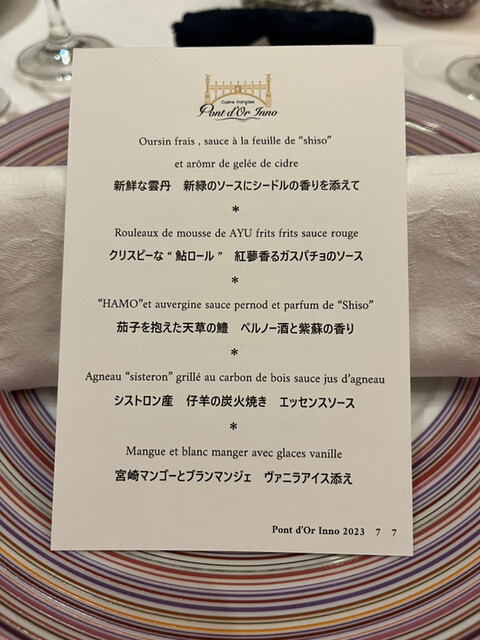 Cuisine Française
Pont d'Or Inno
Oursin frais , sauce à la feuille de “shiso”
et arômr de gelée de cidre
新鮮な雲丹　新緑のソースにシードルの香りを添えて
*
Rouleaux de mousse de AYU frits frits sauce rouge
クリスピーな “ 鮎ロール ”　紅蓼香るガスパチョのソース
*
“HAMO”et auvergine sauce pernod et parfum de “Shiso”
茄子を抱えた天草の鱧　ペルノー酒と紫蘇の香り
*
Agneau “sisteron” grillé au carbon de bois sauce jus d’agneau
シストロン産　仔羊の炭火焼き　エッセンスソース
*
Mangue et blanc manger avec glaces vanille
宮崎マンゴーとブランマンジェ　ヴァニラアイス添え
Pont d’Or Inno 2023　7　7